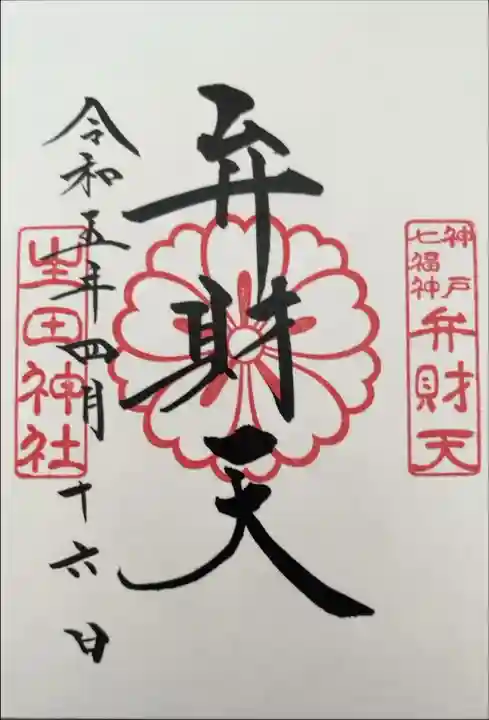 神戸
七福神
弁財天
弁財天
令和五年四月十六日
生田神社